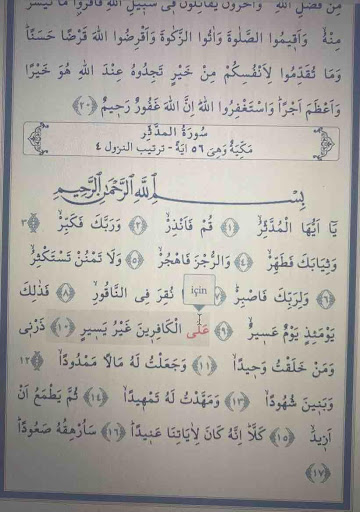 مِن فَضْلِ اللّٰهِ وَاٰخَرُونَ يُقَاتِلُونَ فِى سَبِيلِ اللّٰهِ فَاقْرَؤُا مَا تَيَسَّرَ
مِنْهُ وَاَقِيمُوا الصَّلٰوةَ وَاٰتُوا الزَّكٰوةَ وَاَقْرِضُوا اللّٰهَ قَرْضًا حَسَنًا
وَمَا تُقَدِّمُوا لِاَنْفُسِكُمْ مِنْ خَيْرٍ تَجِدُوهُ عِنْدَ اللّٰهِ هُوَ خَيْرًا
وَاَعْظَمَ اَجْرًا وَاسْتَغْفِرُوا اللّٰهَ اِنَّ اللّٰهَ غَفُورٌ رَحِيمٌ ﴿٢٠﴾
سُورَةُ الْمُدَّثِّرِ
مَكِّيَّةٌ وَهِىَ ٥٦ اٰيَةً - ترتيب النزول ٤
بِسْمِ اللّٰهِ الرَّحْمٰنِ الرَّحِيمِ
يَا اَيُّهَا الْمُدَّثِّرُ ﴿١﴾ قُمْ فَاَنْذِرْ ﴿٢﴾ وَرَبَّكَ فَكَبِّرْ ﴿٣﴾
وَثِيَابَكَ فَطَهِّرْ ﴿٤﴾ وَالرُّجْزَ فَاهْجُرْ ﴿٥﴾ وَلَا تَمْنُنْ تَسْتَكْثِرُ
﴿٦﴾ وَلِرَبِّكَ فَاصْبِرْ ﴿٧﴾ نُقِرَ فِى النَّاقُورِ ﴿٨﴾ فَذٰلِكَ
için
يَوْمَئِذٍ يَوْمٌ عَسِيرٌ ﴿٩﴾ عَلَى الْكَافِرِينَ غَيْرُ يَسِيرٍ ﴿١٠﴾ ذَرْنِى
وَمَنْ خَلَقْتُ وَحِيدًا ﴿١١﴾ وَجَعَلْتُ لَهُ مَالًا مَمْدُودًا ﴿١٢﴾
وَبَنِينَ شُهُودًا ﴿١٣﴾ وَمَهَّدْتُ لَهُ تَمْهِيدًا ﴿١٤﴾ ثُمَّ يَطْمَعُ اَنْ
اَزِيدَ ﴿١٥﴾ كَلَّا اِنَّهُ كَانَ لِاٰيَاتِنَا عَنِيدًا ﴿١٦﴾ سَاُرْهِقُهُ صَعُودًا
﴿١٧﴾